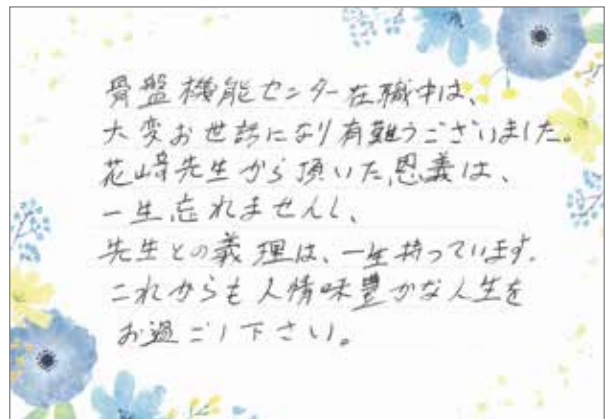 骨盤機能センター在職中は、
大変お世話になり有難うございました。
花崎先生から頂いた恩義は、
一生忘れませんし、
先生との義理は、一生持っています。
これからも人情味豊かな人生を
お過ごし下さい。